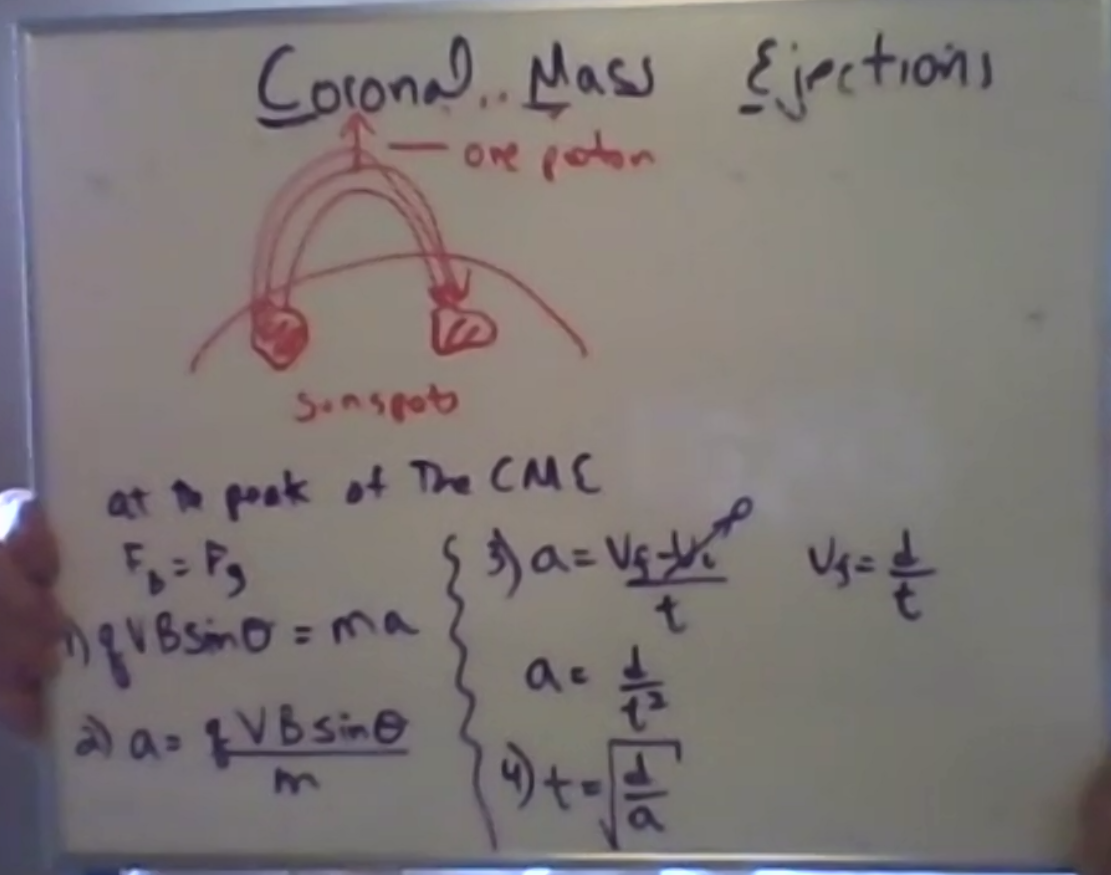 Coronal Mass Ejections
one proton
sunspots
at the peak of The CME
F_b = F_g
1) qVBsinθ = ma
2) a = qVBsinθ / m
3) a = (V_f - V_i) / t
V_f = d / t
a = d / t²
4) t = √(d / a)